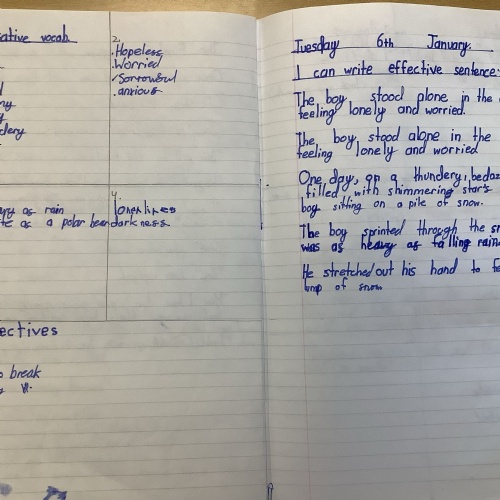 ative vocab
2.
.Hopeless
.Worried
.Sorrowful
.anxious
ny
y
dery
4.
loneliness
darkness
as rain
te as a polar bear
ectives
o break
Tuesday 6th January.
I can write effective sentence
The boy stood plone in the
feeling lonely and worried.
The boy stood alone in the
feeling lonely and worried
One day, on a thundery, bedaz
filled with shimmering stars
boy sitting on a pile of snow.
The boy sprinted through the sn
was as heavy as falling rain
He stretched out his hand to fe
of snow